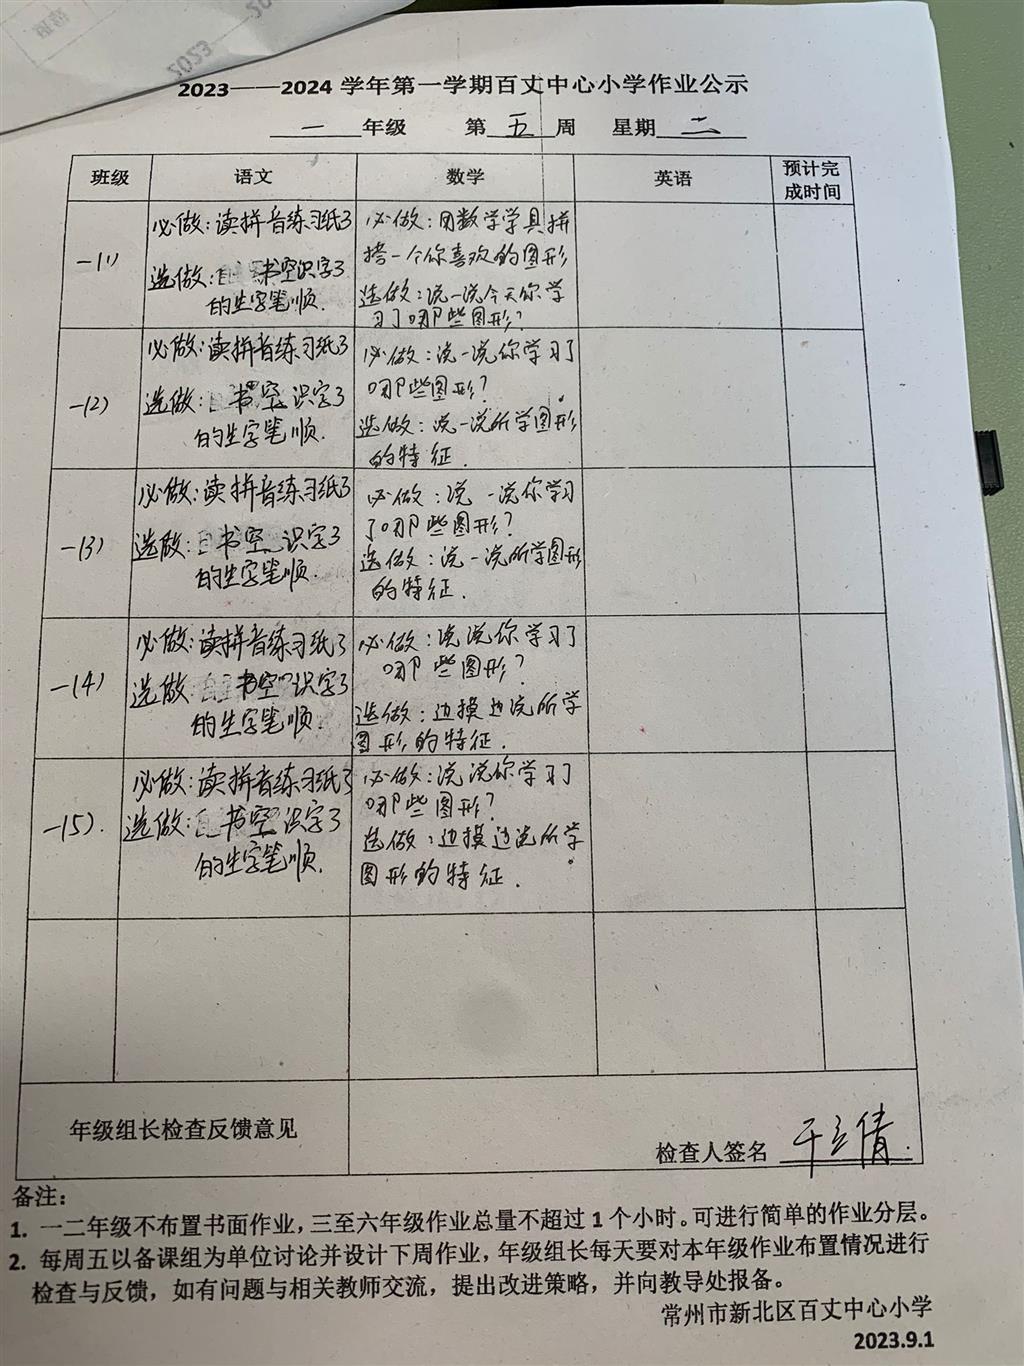 2023
2023——2024 学年第一学期百丈中心小学作业公示
一 年级 第 五 周 星期 二
班级 语文 数学 英语 预计完成时间
一(1)
必做:读拼音练习纸3
选做: 书空识字3
的生字笔顺.
必做:用数学学具拼
搭一个你喜欢的图形
选做:说一说今天你学
习了哪些图形?
一(2)
必做:读拼音练习纸3
选做: 书空识字3
的生字笔顺.
必做:说一说你学习了
哪些图形?
选做:说一说所学图形
的特征.
一(3)
必做:读拼音练习纸3
选做: 书空识字3
的生字笔顺.
必做:说一说你学习
了哪些图形?
选做:说一说所学图形
的特征.
一(4)
必做:读拼音练习纸3
选做: 书空识字3
的生字笔顺.
必做:说说你学习了
哪些图形?
选做:边摸边说所学
图形的特征.
一(5).
必做:读拼音练习纸3
选做: 书空识字3
的生字笔顺.
必做:说说你学习了
哪些图形?
选做:边摸边说所学
图形的特征.
年级组长检查反馈意见
检查人签名
备注:
1. 一二年级不布置书面作业,三至六年级作业总量不超过 1 个小时。可进行简单的作业分层。
2. 每周五以备课组为单位讨论并设计下周作业,年级组长每天要对本年级作业布置情况进行
检查与反馈,如有问题与相关教师交流,提出改进策略,并向教导处报备。
常州市新北区百丈中心小学
2023.9.1